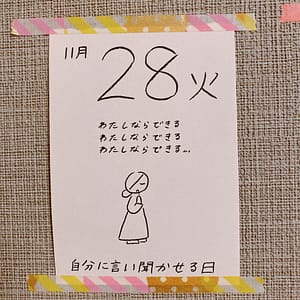 11月
28火
わたしならできる
わたしならできる
わたしならできる...
自分に言い聞かせる日